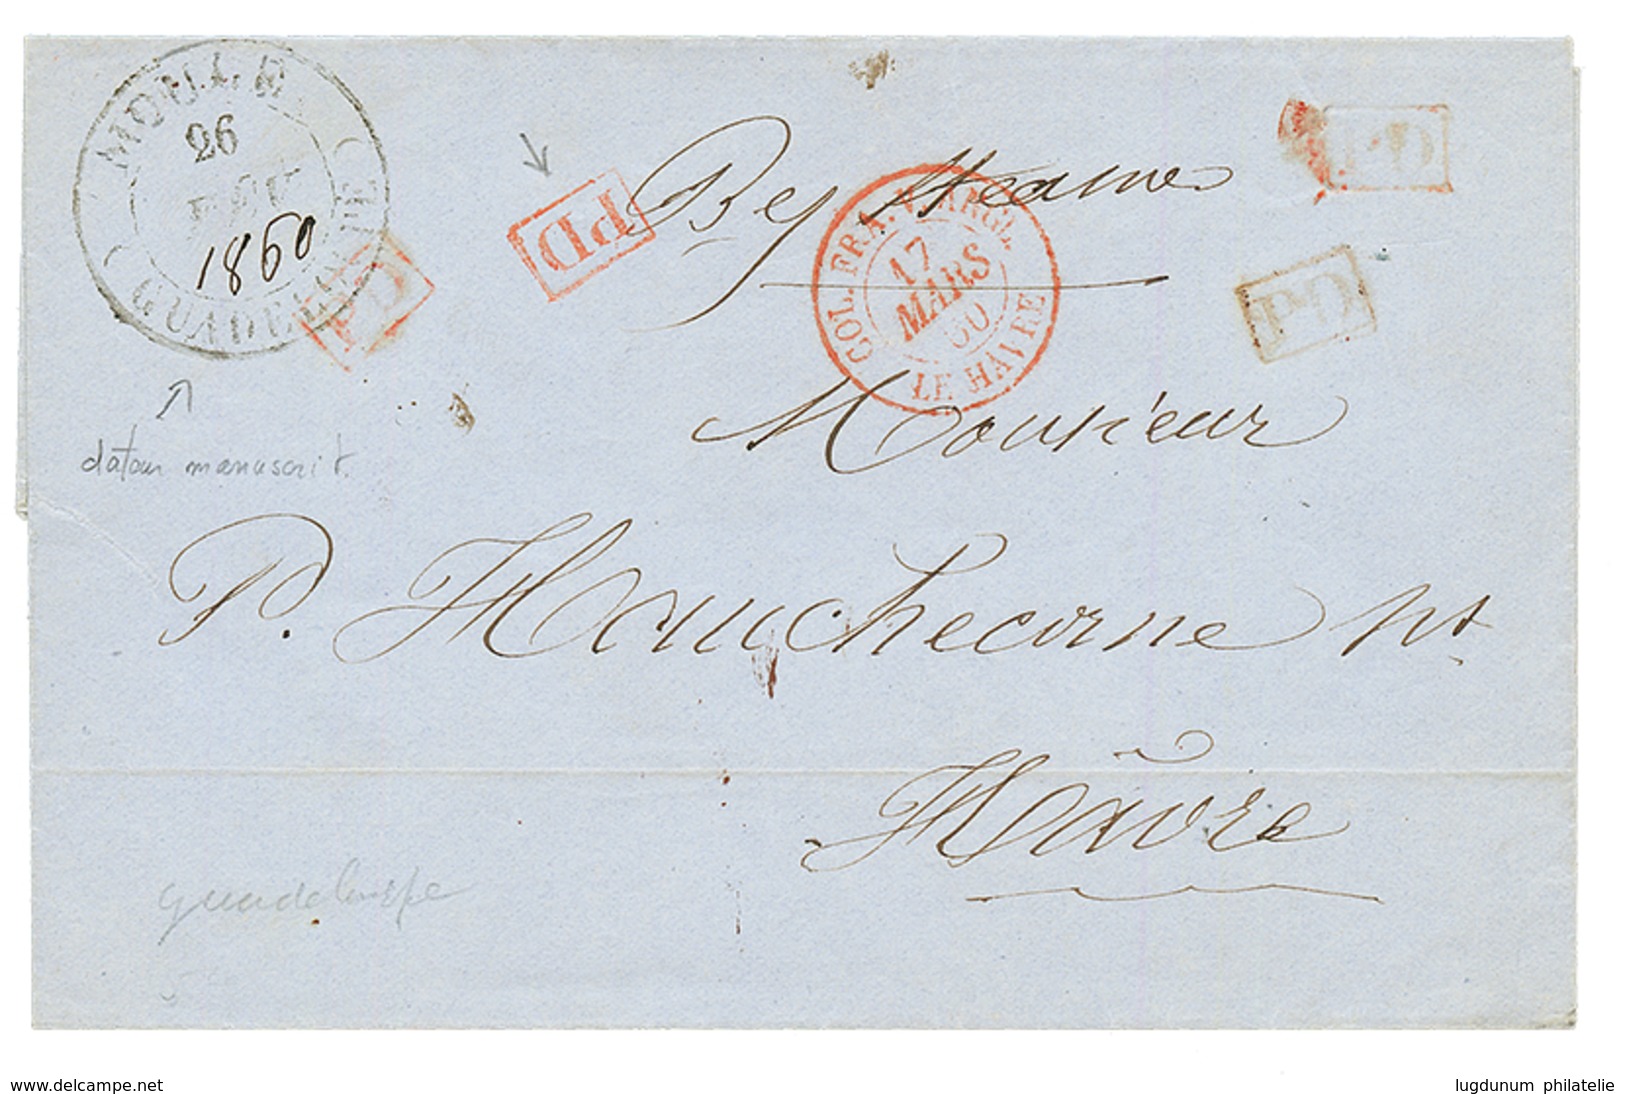 MOULE
26
FEV
1860
GUADELOUPE
PD
PD
By Steamer
COL. FRA. V. ANGL.
17
MARS
60
LE HAVRE
PD
PD
Monsieur
dateur manuscrit.
P. Hauchecorne Nt
Hâvre
guadeloupe
www.delcampe.net
lugdunum philatelie